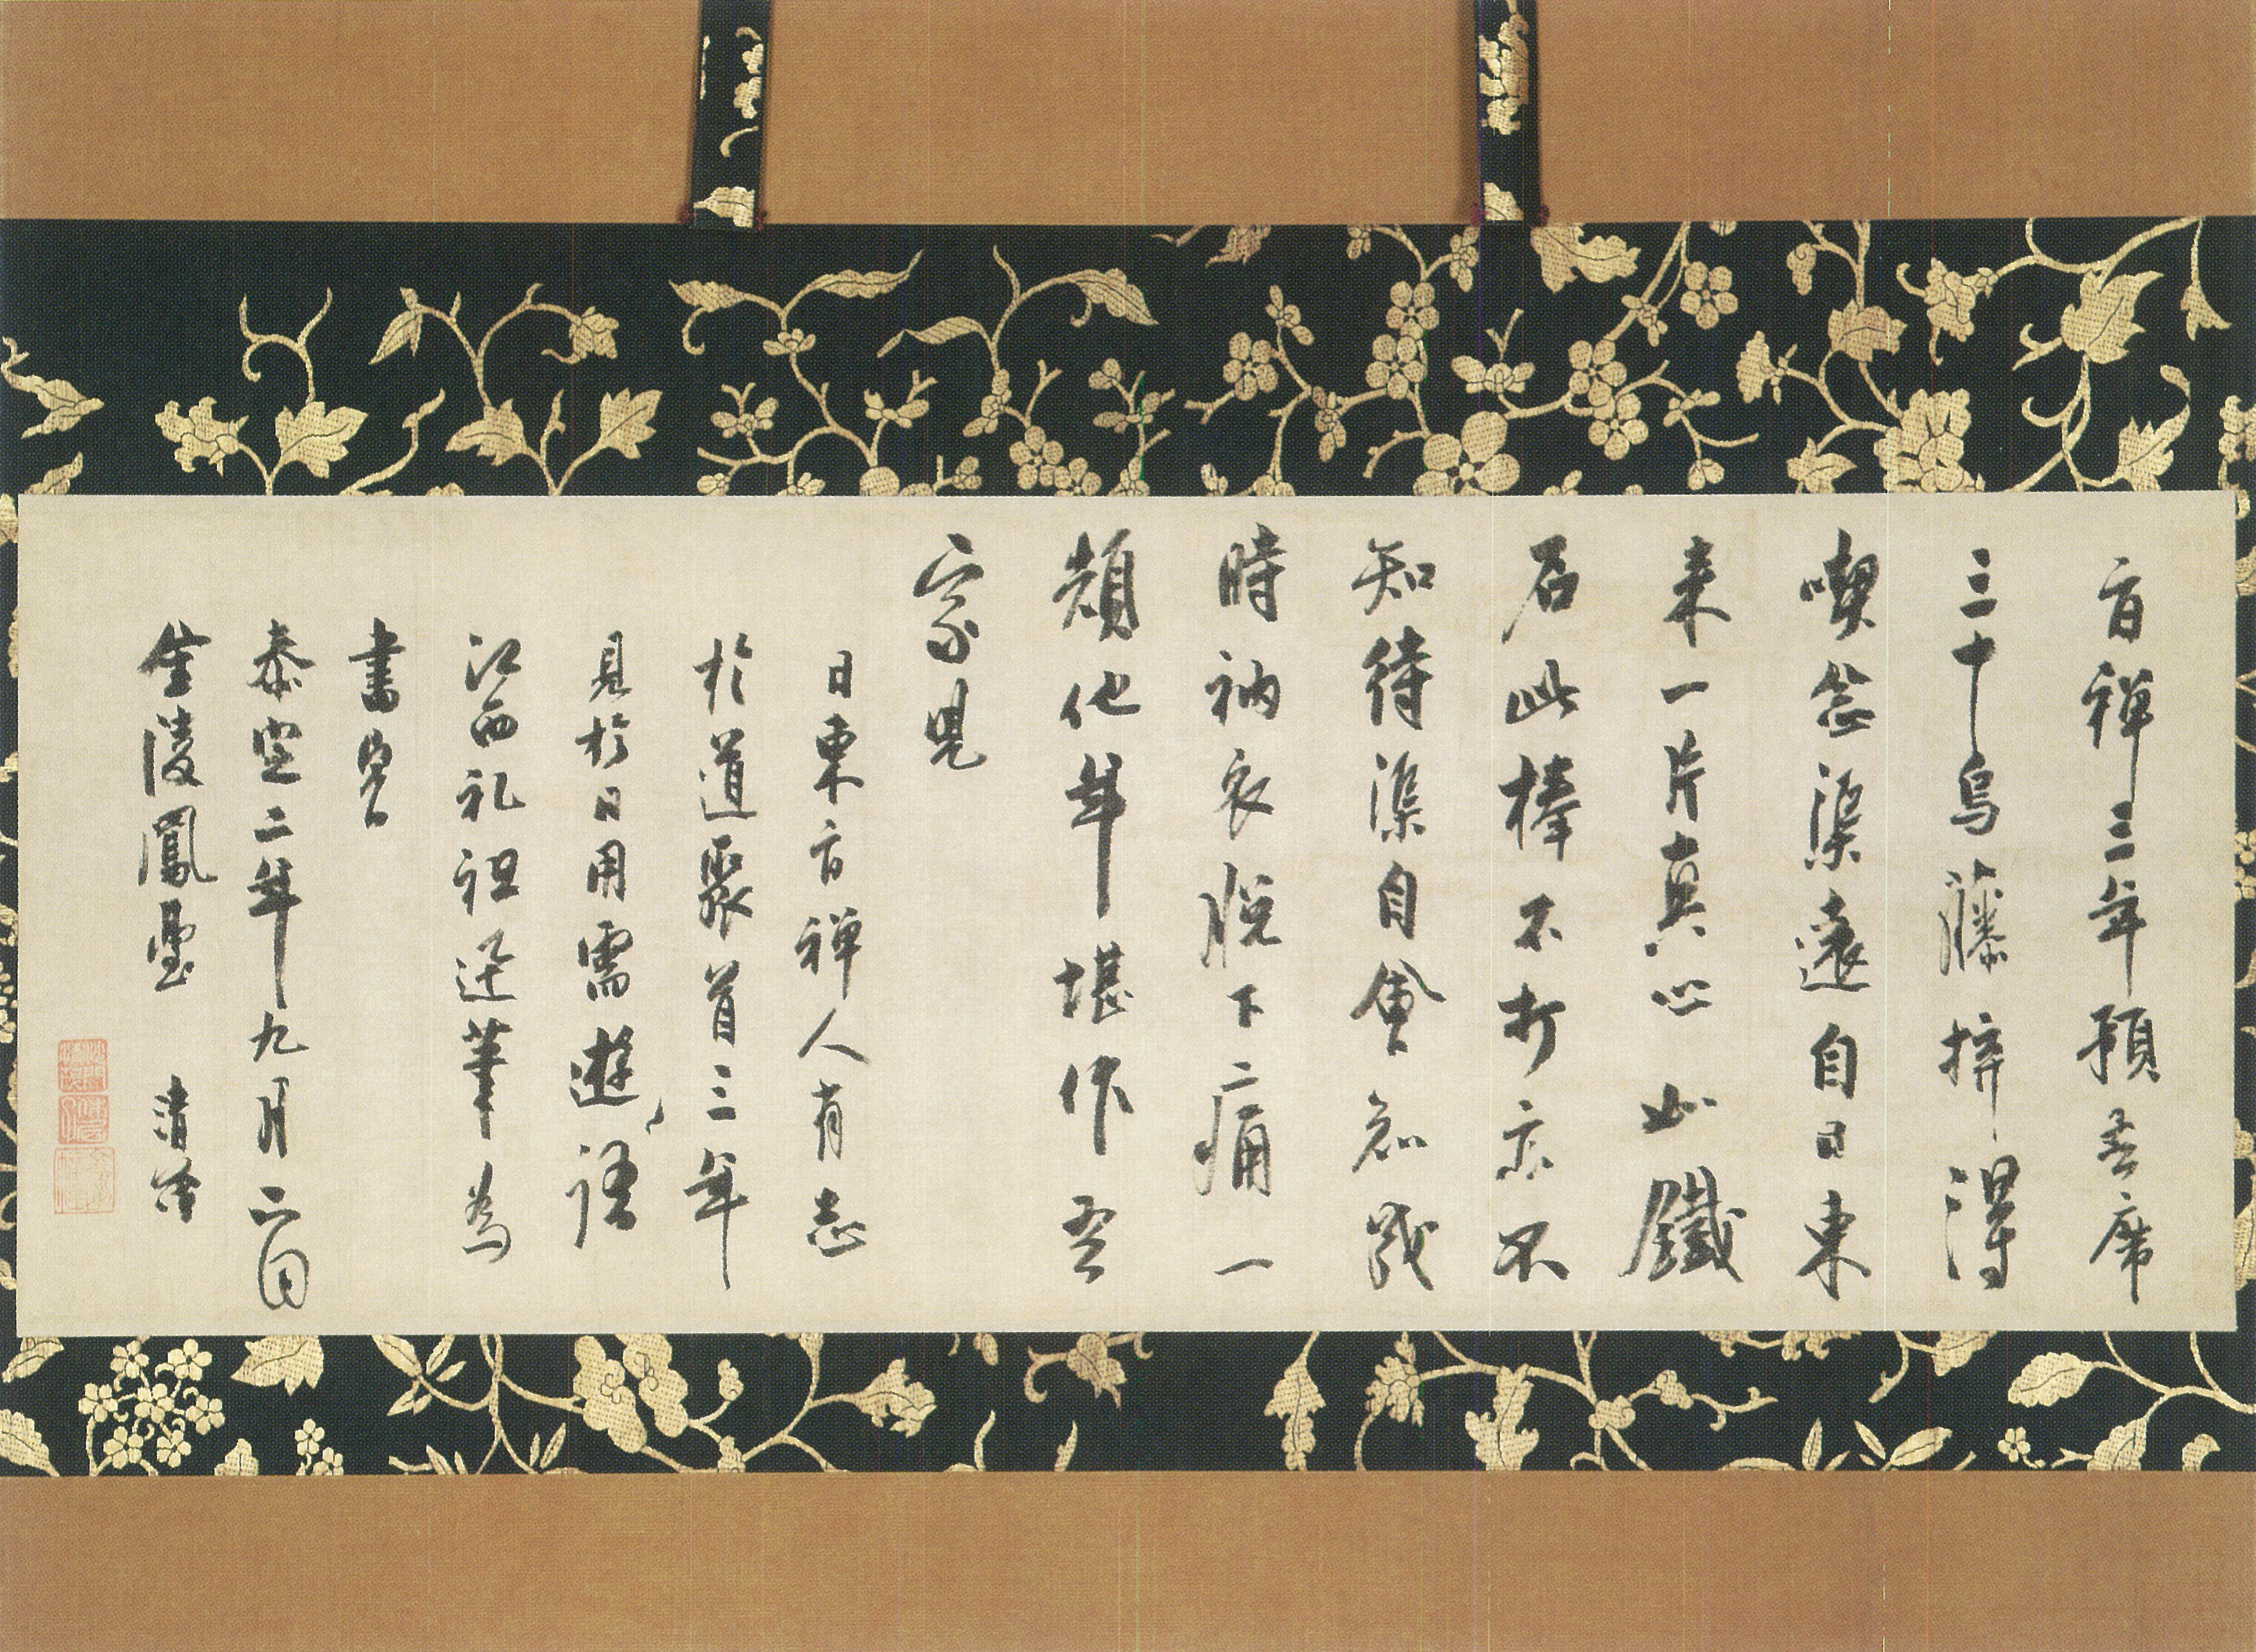 旨禅三年預吾席
三十烏藤捽得
喫念渠遠自日東
来一片真心如鐵
石此棒不打亦不
知待渠自會知戰
時衲衣脱下痛一
頓他年堪作吾
家児
日東旨禅人有志
於道聚首三年
見於日用需遊語
江西礼祖逆筆為
書
泰定二年九月二日
金陵鳳臺 清茂